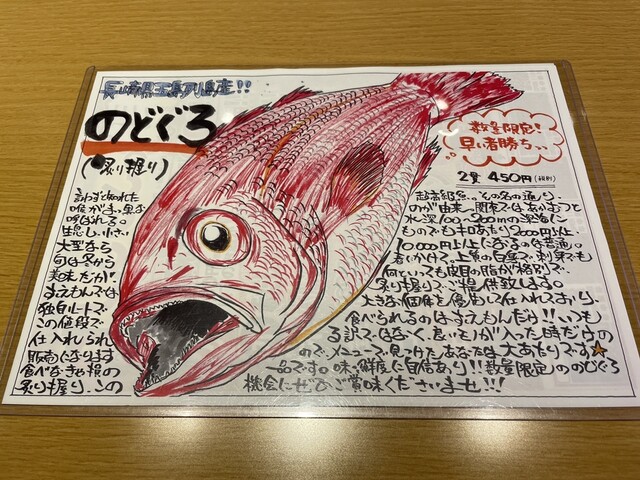 長崎県五島列島産!!
のどぐろ
(炙り握り)
数量限定!
早い者勝ち…
2貫 450円(税別)
言わずと知れた超高級魚。その名の通り、
喉がまっ黒なのが由来。関東ではあかむつと
呼ばれる。水深100〜200mの深海に
生息し、小さいものでもキロあたり2000円以上
大型なら10,000円以上になるのは普通。
旬は冬から春にかけて。上質の白身で、刺身でも
美味だが何といっても皮目の脂が格別で
すえもんでは炙り握りでご提供致します。
独自ルートで大きな個体を優先して仕入れており、
この値段で食べられるのはすえもんだけ!!いつも
仕入れられる訳ではなく、良いものが入った時だけの
販売になりますので、メニューで見つけたあなたは大あたりです★
食べなきゃ損の一品です。味・鮮度に自信あり!!数量限定ののどぐろ
炙り握り、この機会にぜひご賞味くださいませ!!!